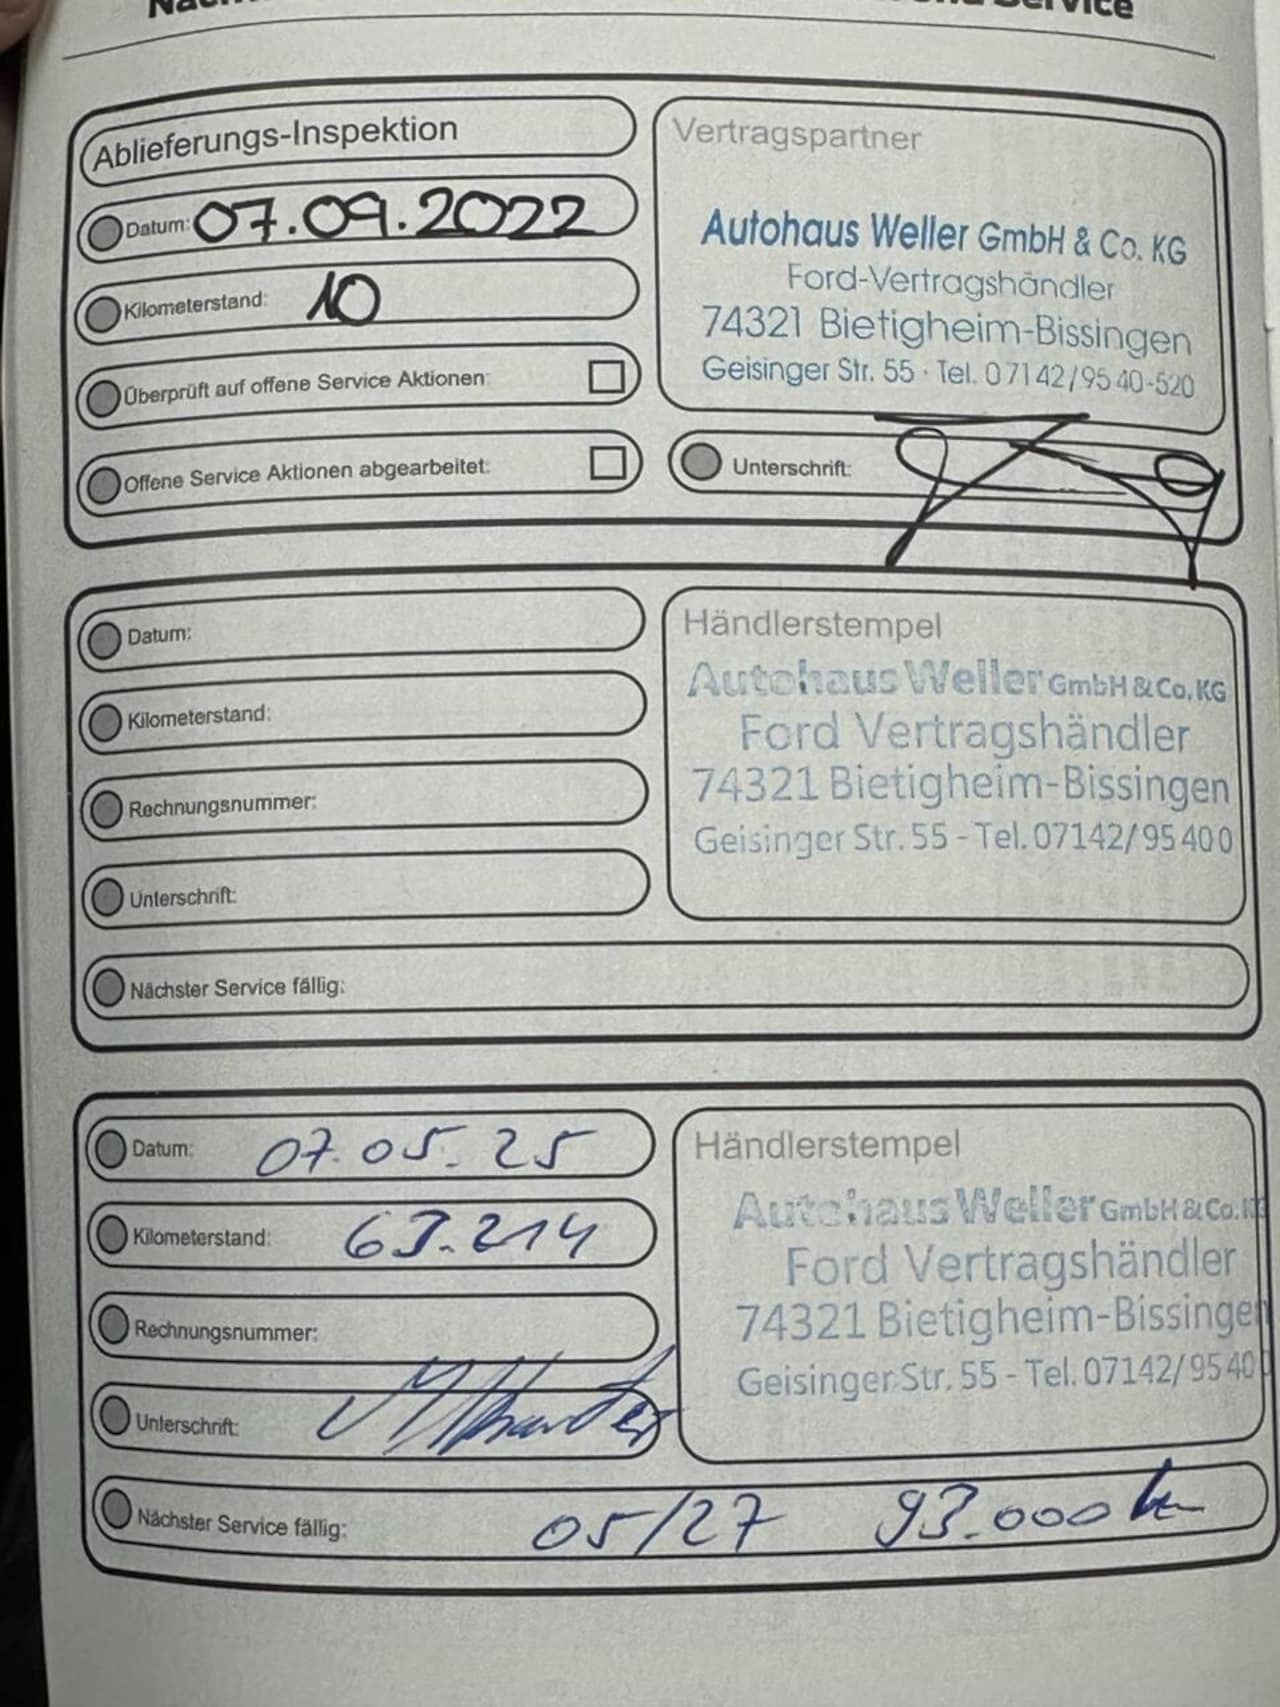 Service
Ablieferungs-Inspektion
Datum: 07.09.2022
Kilometerstand: 10
Überprüft auf offene Service Aktionen:
Offene Service Aktionen abgearbeitet:
Vertragspartner
Autohaus Weller GmbH & Co. KG
Ford-Vertragshändler
74321 Bietigheim-Bissingen
Geisinger Str. 55 · Tel. 07142/9540-520
Unterschrift:
Datum:
Kilometerstand:
Rechnungsnummer:
Unterschrift:
Händlerstempel
Autohaus Weller GmbH & Co. KG
Ford Vertragshändler
74321 Bietigheim-Bissingen
Geisinger Str. 55 - Tel. 07142/95400
Nächster Service fällig:
Datum: 07.05.25
Kilometerstand: 63.214
Rechnungsnummer:
Unterschrift:
Händlerstempel
Autohaus Weller GmbH & Co. KG
Ford Vertragshändler
74321 Bietigheim-Bissingen
Geisinger Str. 55 - Tel. 07142/95400
Nächster Service fällig: 05/27 93.000 km